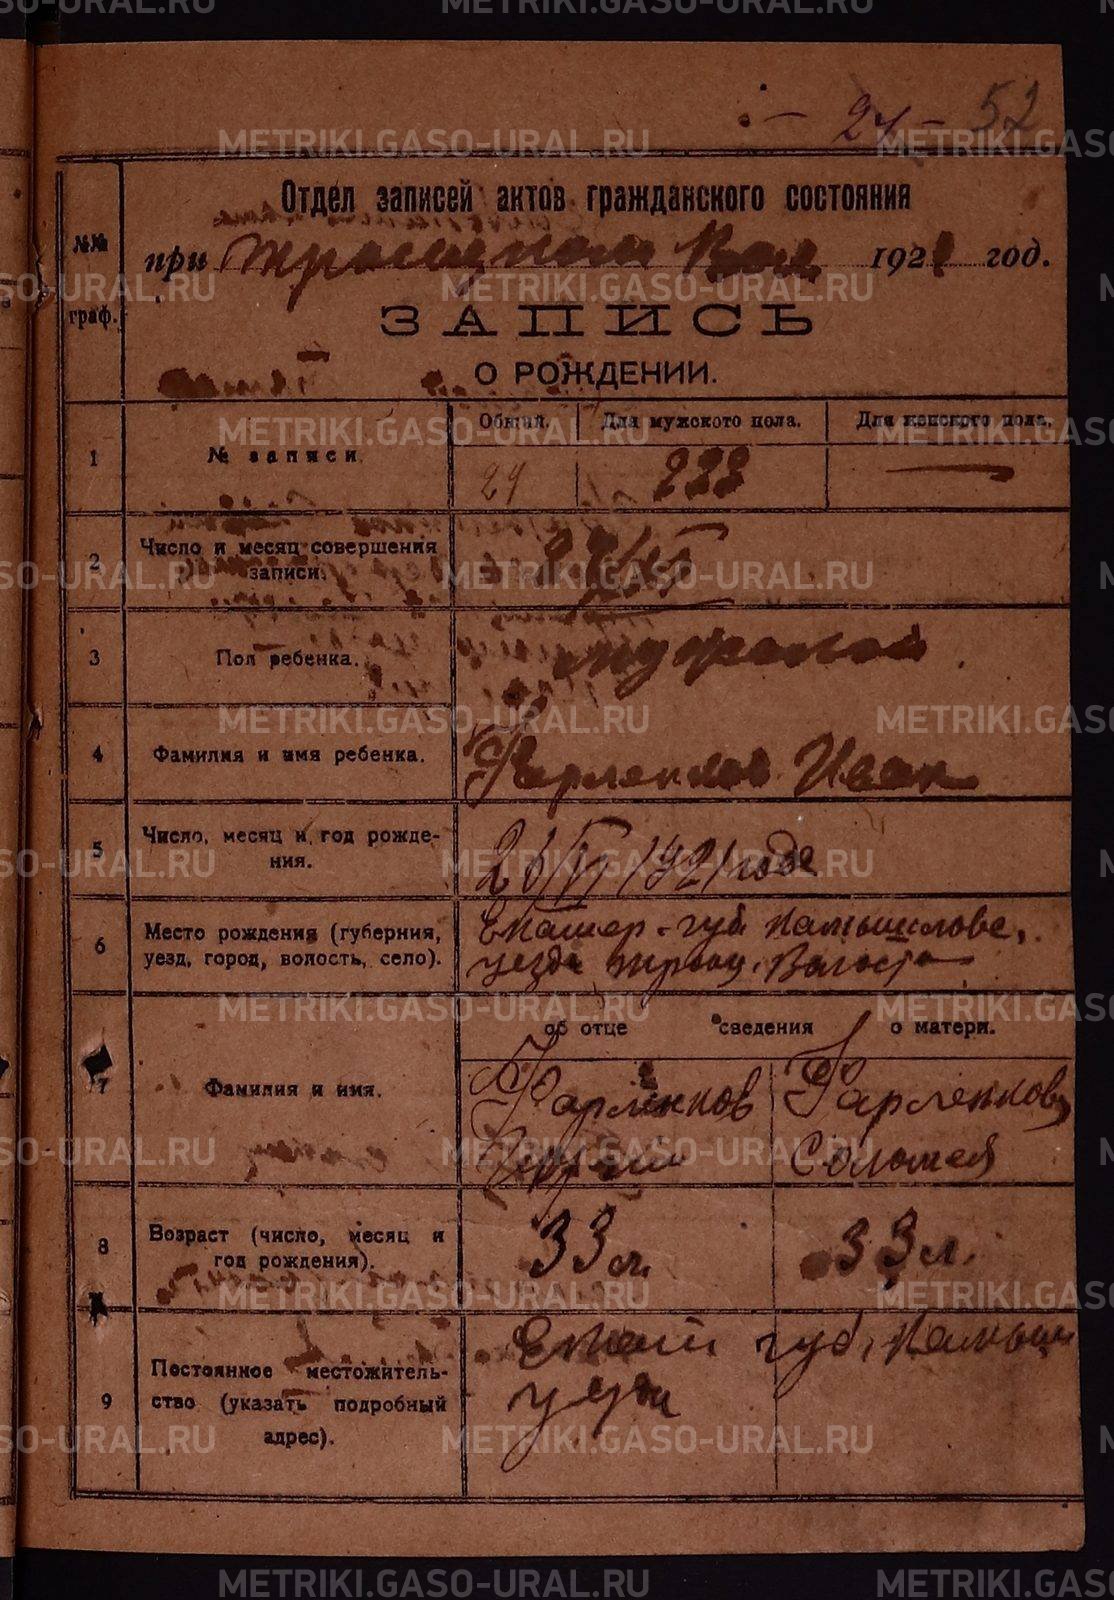 - 24 - 52
Отдел записей актов гражданского состояния
№№ граф.
при Троицком Вол 1921 год.
ЗАПИСЬ
О РОЖДЕНИИ.
1 № записи. Общий. Для мужского пола. Для женского пола.
24 —
2 Число и месяц совершения
записи.
3 Пол ребенка. мужской
4 Фамилия и имя ребенка. Фарленков Иван
5 Число, месяц и год рожде-
ния. 1921 года
6 Место рождения (губерния, Екатер. губ Камышлове.
уезд, город, волость, село). уезда Троиц. Волости
об отце сведения о матери.
7 Фамилия и имя. Фарленков Фарленкова
Соломея
8 Возраст (число, месяц и
год рождения). 33 л. 33 л.
9 Постоянное местожитель-
ство (указать подробный
адрес). Екат губ, Камышл
уезд
METRIKI.GASO-URAL.RU